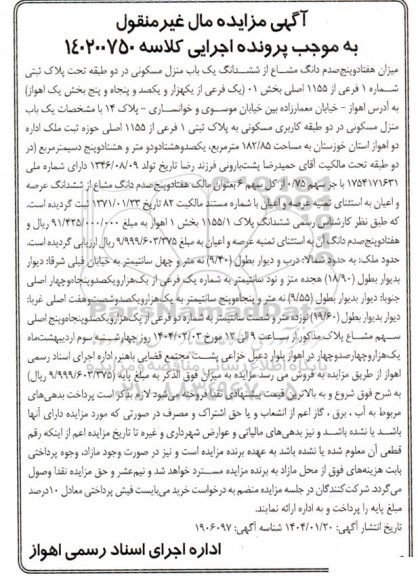 آگهی مزایده مال غیرمنقول
به موجب پرونده اجرایی کلاسه ۱٤۰۲۰۰۷۵۰
میزان هفتادوپنج‌صدم دانگ مشاع از ششدانگ یک باب منزل مسکونی در دو طبقه تحت پلاک ثبتی
شماره ۱ فرعی از ۱۱۵۵ اصلی بخش ۰۱ (یک فرعی از یکهزار و یکصد و پنجاه و پنج بخش یک اهواز)
به آدرس اهواز - خیابان معمارزاده بین خیابان موسوی و خوانساری - پلاک ۱۴ با مشخصات یک باب
منزل مسکونی در دو طبقه کاربری مسکونی به پلاک ثبتی ۱ فرعی از ۱۱۵۵ اصلی حوزه ثبت ملک اداره
دو اهواز استان خوزستان به مساحت ۱۸۲/۸۵ مترمربع، یکصدوهشتادودو متر و هشتادوپنج دسیمترمربع (در
دو طبقه تحت مالکیت آقای حمیدرضا پشت‌بارونی فرزند رضا تاریخ تولد ۱۳۴۶/۰۸/۰۹ دارای شماره ملی
۱۷۵۴۱۷۱۶۳۱ با جز سهم ۰/۷۵ از کل سهم ۶ بعنوان مالک هفتادوپنج‌صدم دانگ مشاع از ششدانگ عرصه
و اعیان به استثنای ثمنیه عرصه و اعیان با شماره مستند مالکیت ۸۲ تاریخ ۱۳۷۱/۰۱/۲۳ ثبت گردیده است.
که طبق نظر کارشناس رسمی ششدانگ پلاک ۱۱۵۵/۱ بخش ۱ اهواز به مبلغ ۹۱/۴۲۵/۰۰۰/۰۰۰ ریال و
هفتادوپنج‌صدم دانگ آن به استثنای ثمنیه عرصه و اعیان به مبلغ ۹/۹۹۹/۶۰۳/۳۷۵ ریال ارزیابی گردیده است.
حدود ملک: به حدود شمالا: درب و دیوار بطول (۹/۴۰) نه متر و چهل سانتیمتر به خیابان فیلی شرقا: دیوار
بدیوار بطول (۱۸/۹۰) هجده متر و نود سانتیمتر به شماره یک فرعی از یک‌هزارویکصدوپنجاه‌وچهار اصلی
جنوبا: دیوار بدیوار بطول (۹/۵۵) نه متر و پنجاه‌وپنج سانتیمتر به یک‌هزارویکصدوشصت‌وهفت اصلی غربا:
دیوار بدیوار بطول (۱۹/۶۰) نوزده متر و شصت سانتیمتر به شماره دو فرعی از یک‌هزارویکصدوپنجاه‌وپنج اصلی
سهم مشاع پلاک مذکور از ساعت ۹ الی ۱۲ مورخ ۱۴۰۴/۰۲/۰۳ روز چهارشنبه سوم اردیبهشت‌ماه
یک‌هزاروچهارصدوچهار در اهواز بلوار دعبل خزاعی پشت مجتمع قضایی باهنر، اداره اجرای اسناد رسمی
اهواز از طریق مزایده به فروش می رسد مزایده به میزان فوق الذکر به مبلغ پایه (۹/۹۹۹/۶۰۳/۳۷۵ ریال)
به شرح فوق شروع و به بالاترین قیمت پیشنهادی نقدا فروخته می‌شود لازم بذکر است پرداخت بدهی‌های
مربوط به آب ، برق ، گاز اعم از انشعاب و یا حق اشتراک و مصرف در صورتی که مورد مزایده دارای آنها
باشد یا نشده باشد و نیز بدهی‌های مالیاتی و عوارض شهرداری و غیره تا تاریخ مزایده اعم از اینکه رقم
قطعی آن معلوم شده یا نشده باشد به عهده برنده مزایده است و نیز در صورت وجود مازاد، وجوه پرداختی
بابت هزینه‌های فوق از محل مازاد به برنده مزایده مسترد خواهد شد و نیم‌عشر و حق مزایده نقدا وصول
می‌گردد. شرکت‌کنندگان در جلسه مزایده منضم به درخواست خرید می‌بایست فیش پرداختی معادل ۱۰درصد
مبلغ پایه را پرداخت و به اداره ارائه نمایند.
تاریخ انتشار آگهی: ۱۴۰۴/۰۱/۲۰ شناسه آگهی: ۱۹۰۶۰۹۷
اداره اجرای اسناد رسمی اهواز